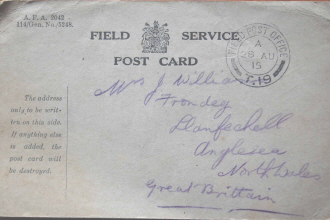 A.F.A. 2042
114/Gen. No./5248.
FIELD SERVICE
POST CARD
FIELD POST OFFICE
A
28 AU
15
T.19
The address
only to be writ-
ten on this side.
If anything else
is added, the
post card will
be destroyed.
Mrs J Williams
Frondeg
Llanfechell
Anglesea
North Wales
Great Brittain